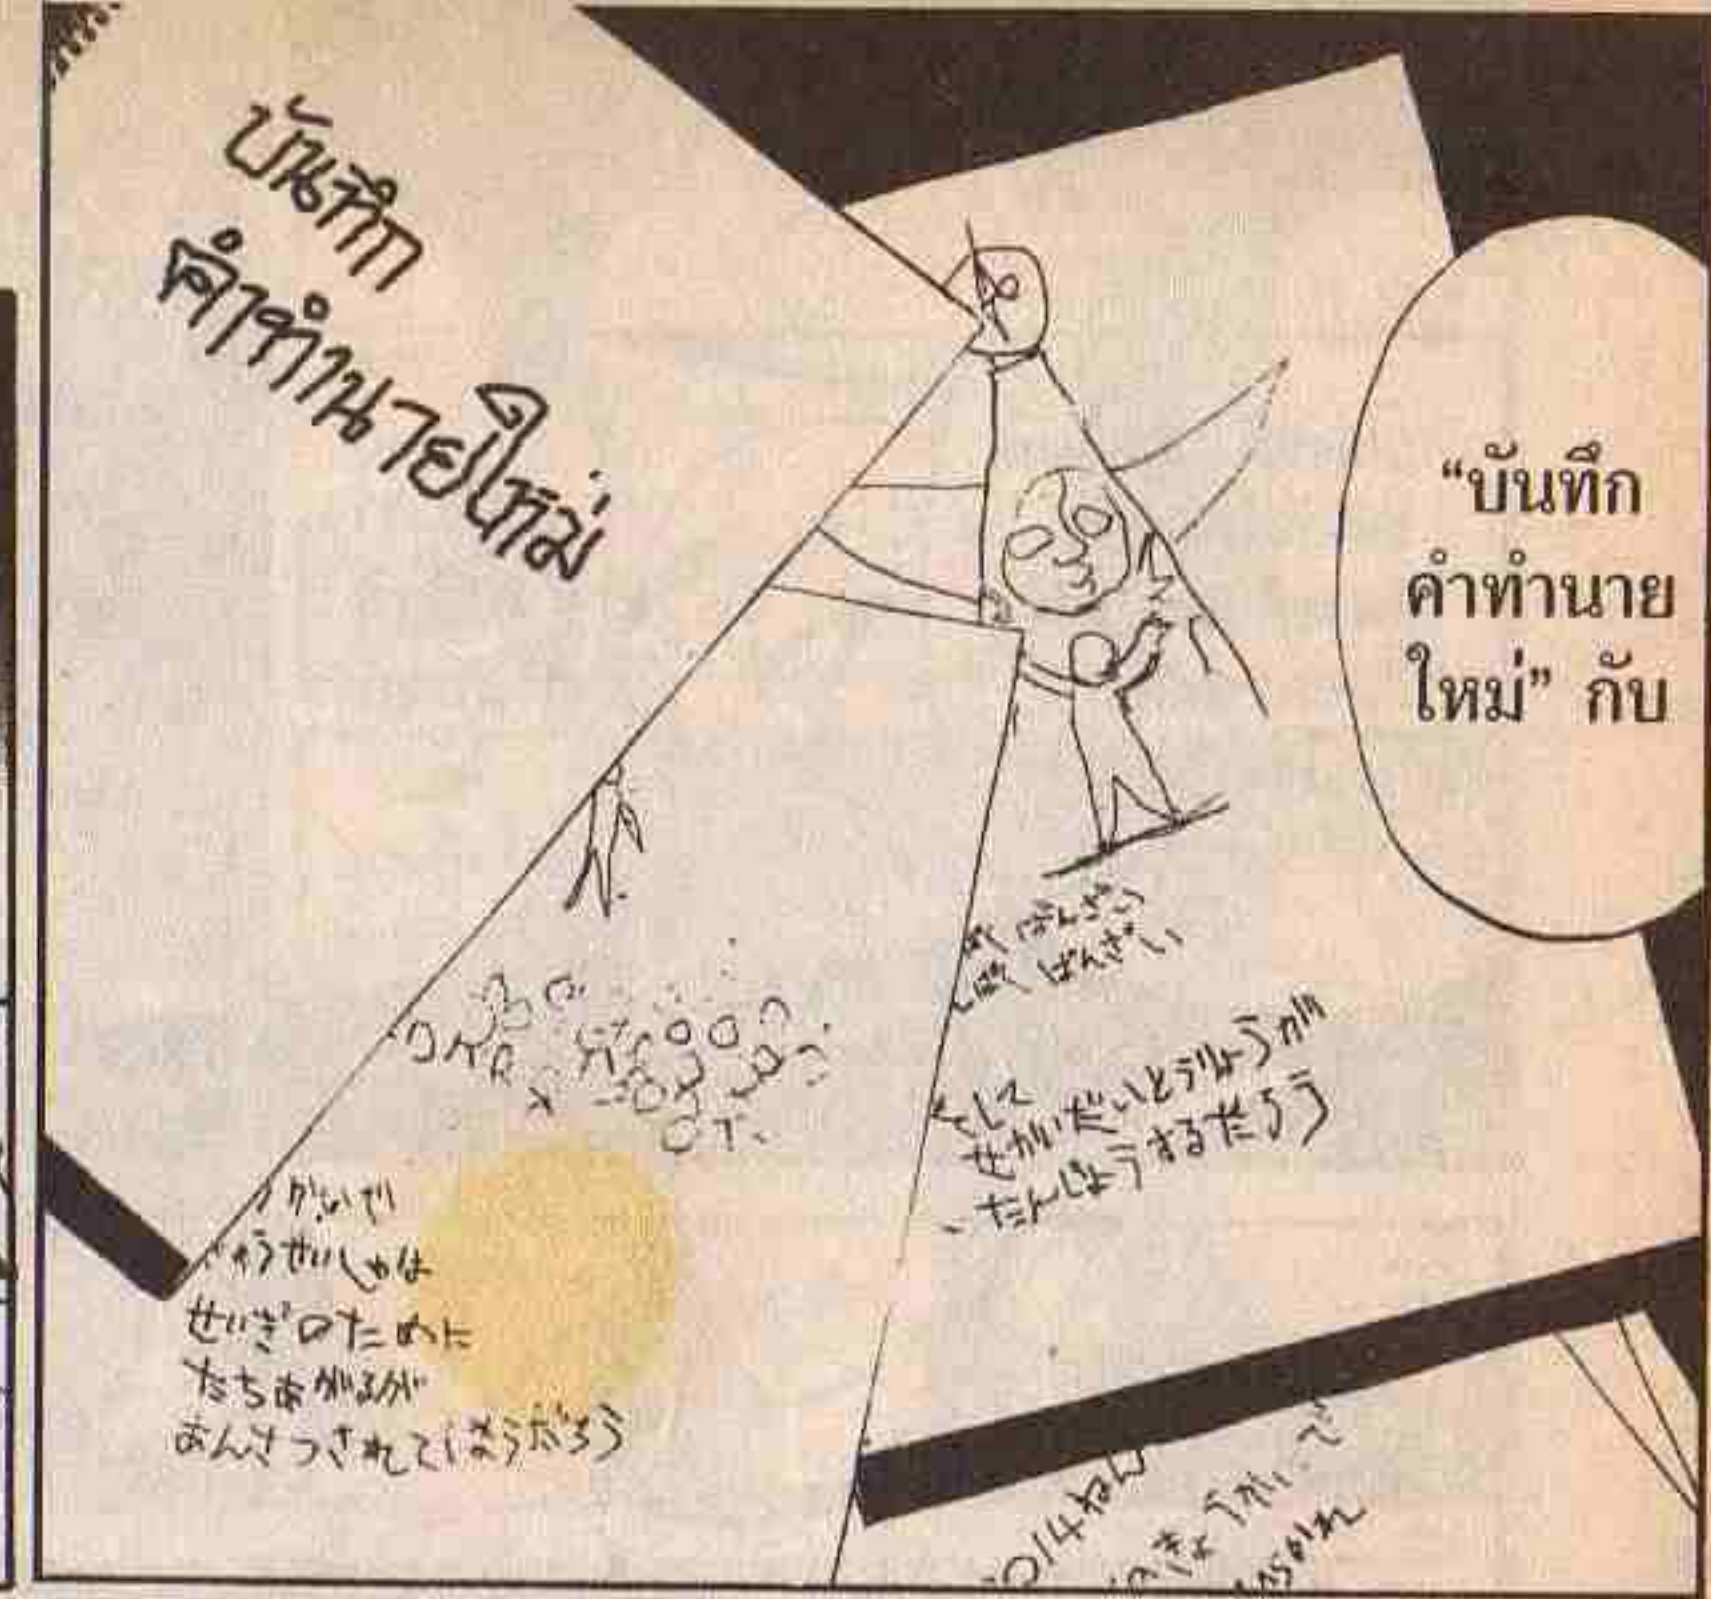 บันทึก
คำทำนายใหม่
“บันทึก
คำทำนาย
ใหม่” กับ
ばんざい
ぱく ばんざい
そして
せかいだいとうりょうが
たんじょうするだろう
かいで
ゅうせいしゅは
せいぎのために
たちあがるが
あんさつされてしまうだろう
014ねん